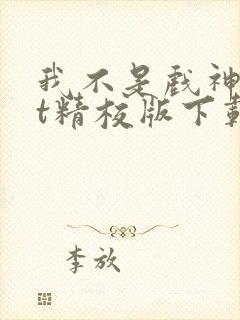 我不是戏神
t精校版下载
李放